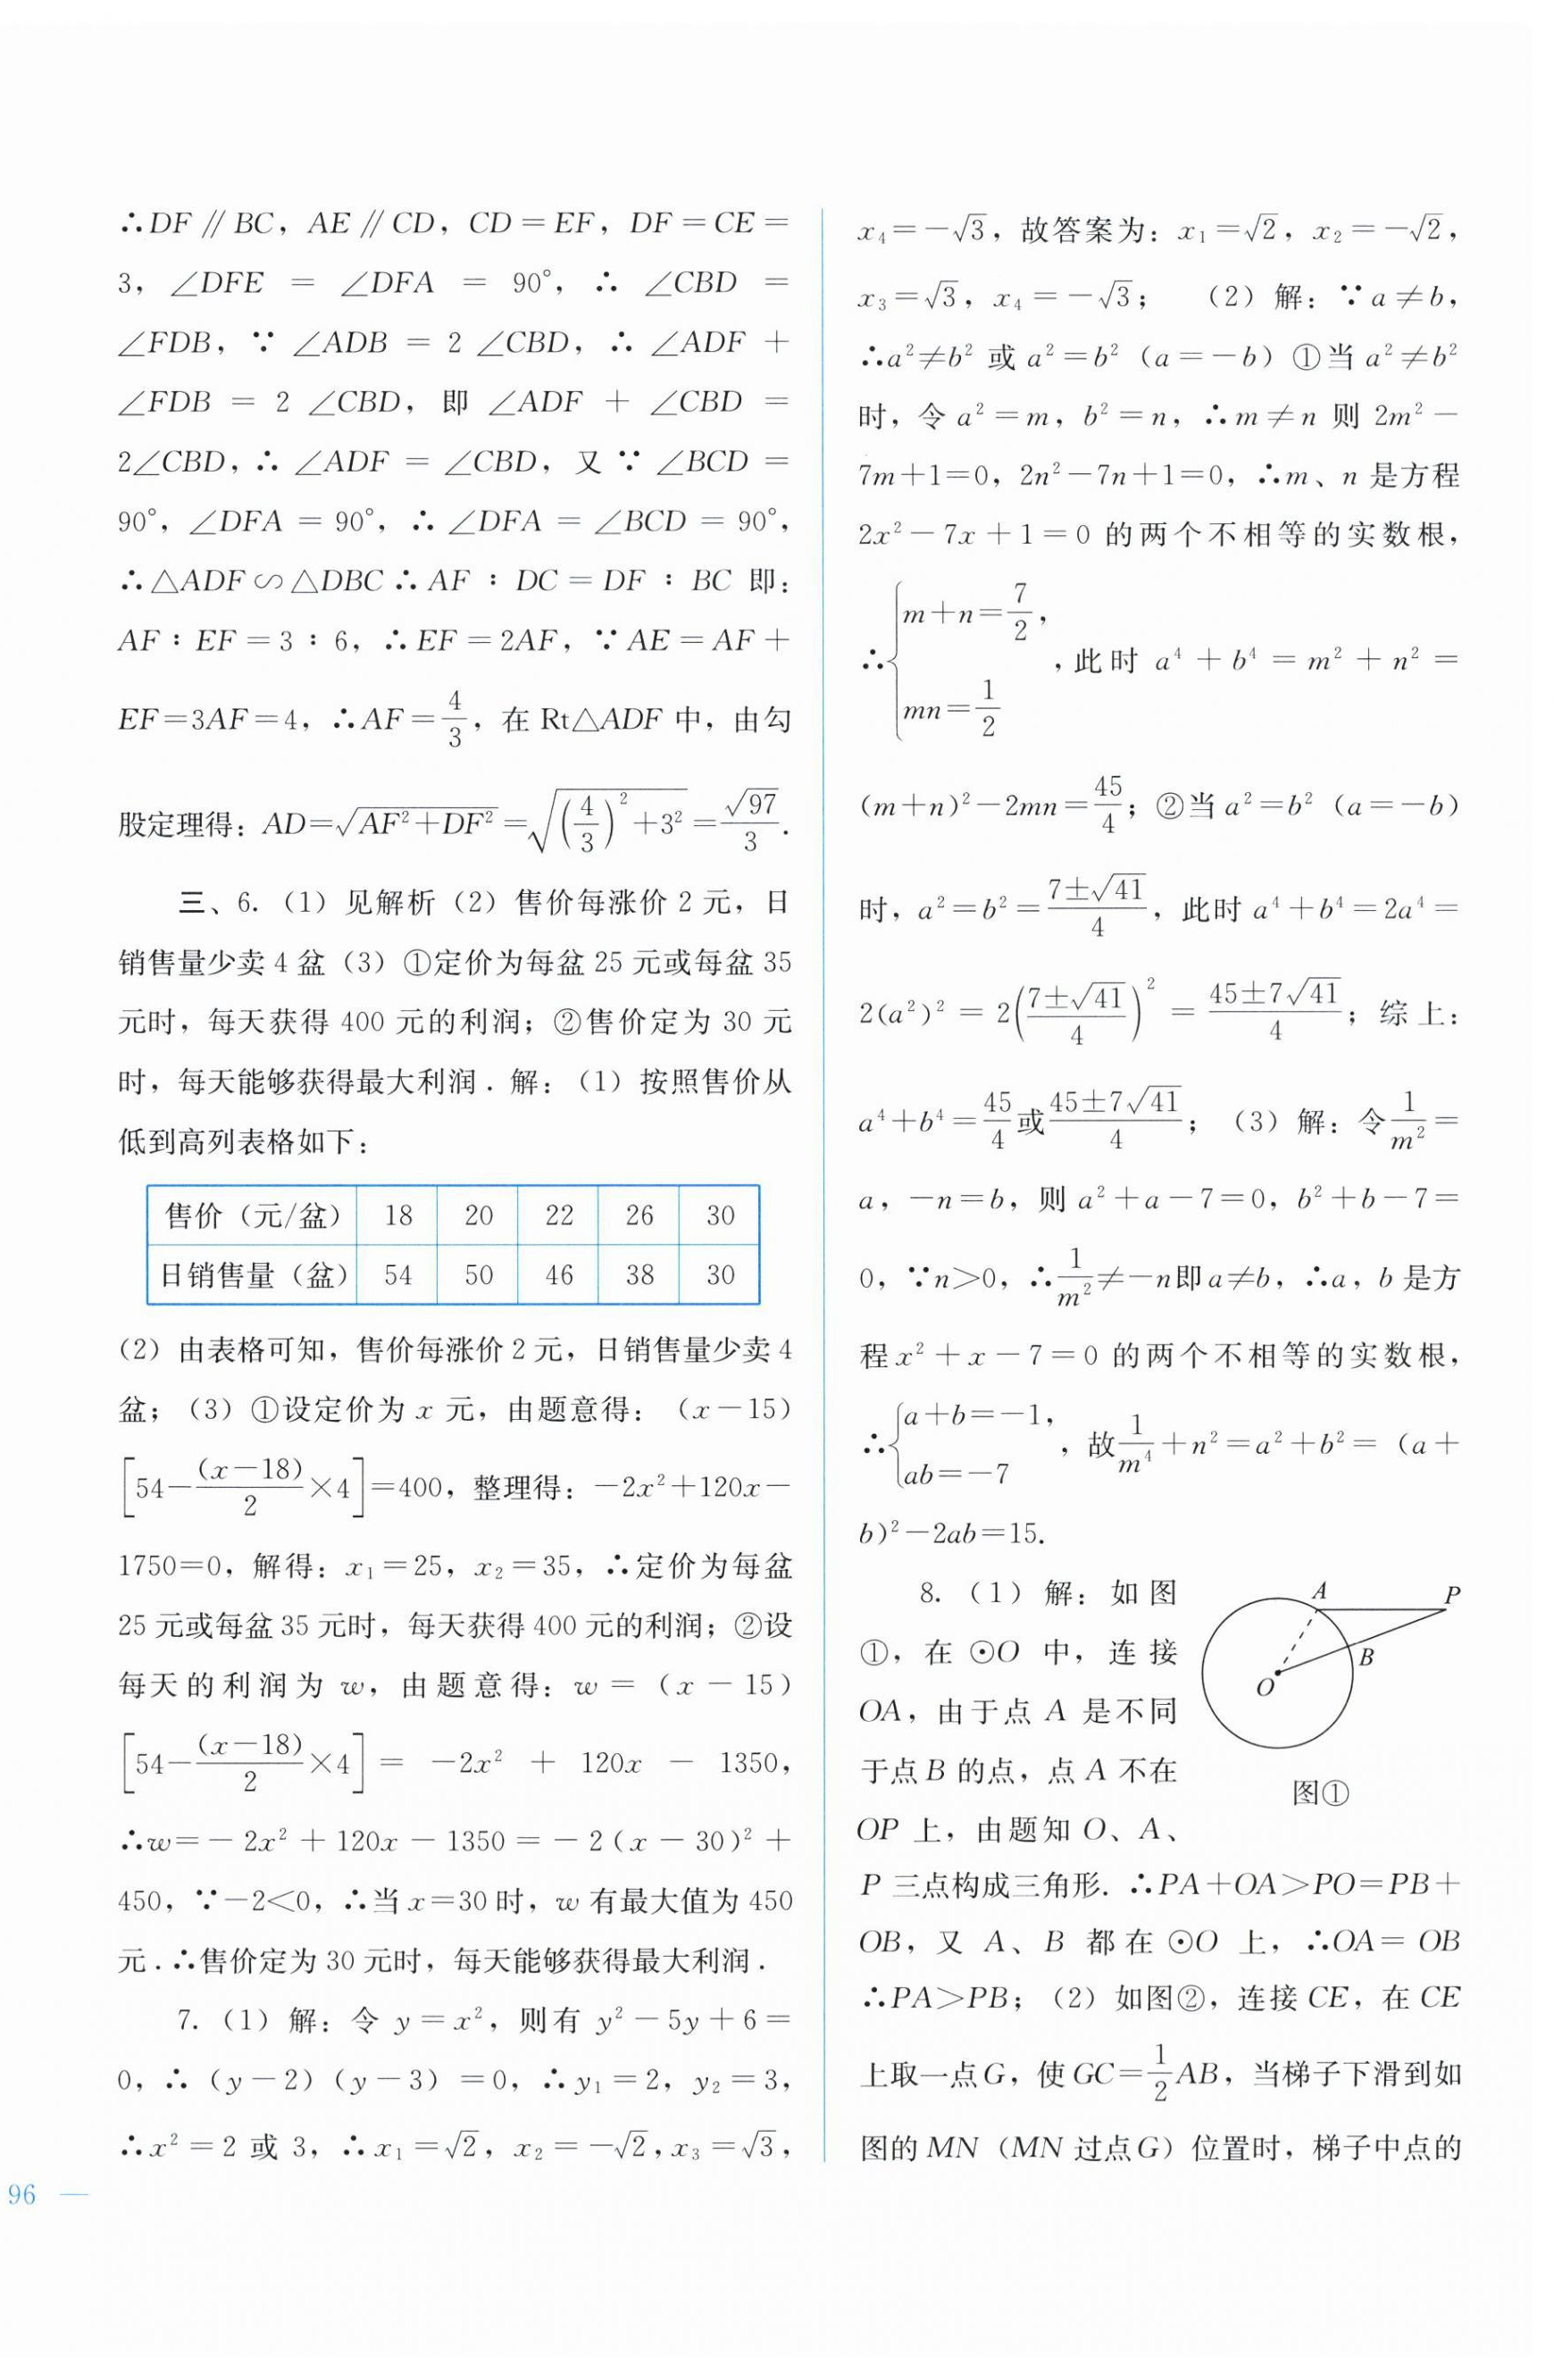 ∴DF∥BC，AE∥CD，CD＝EF，DF＝CE＝
3，∠DFE ＝ ∠DFA ＝ 90°，∴ ∠CBD ＝
∠FDB，∵ ∠ADB ＝ 2 ∠CBD，∴ ∠ADF ＋
∠FDB ＝ 2 ∠CBD，即 ∠ADF ＋ ∠CBD ＝
2∠CBD，∴ ∠ADF ＝ ∠CBD，又∵ ∠BCD ＝
90°，∠DFA ＝ 90°，∴ ∠DFA ＝ ∠BCD ＝ 90°，
∴△ADF∽△DBC∴AF：DC＝DF：BC 即：
AF：EF＝3：6，∴EF＝2AF，∵AE＝AF＋
EF＝3AF＝4，∴AF＝4/3，在 Rt△ADF 中，由勾
股定理得：AD＝√(AF²＋DF²)＝√((4/3)²＋3²)＝√97/3.
三、6.（1）见解析（2）售价每涨价 2 元，日
销售量少卖 4 盆（3）①定价为每盆 25 元或每盆 35
元时，每天获得 400 元的利润；②售价定为 30 元
时，每天能够获得最大利润．解：（1）按照售价从
低到高列表格如下：
售价（元/盆） 18 20 22 26 30
日销售量（盆） 54 50 46 38 30
（2）由表格可知，售价每涨价 2 元，日销售量少卖 4
盆；（3）①设定价为 x 元，由题意得：（x－15）
[54－(x－18)/2×4]＝400，整理得：－2x²＋120x－
1750＝0，解得：x₁＝25，x₂＝35，∴定价为每盆
25 元或每盆 35 元时，每天获得 400 元的利润；②设
每天的利润为 w，由题意得：w＝（x－15）
[54－(x－18)/2×4]＝ －2x² ＋ 120x － 1350，
∴w＝－2x²＋120x－1350＝－2(x－30)²＋
450，∵－2<0，∴当 x＝30 时，w 有最大值为 450
元．∴售价定为 30 元时，每天能够获得最大利润．
7.（1）解：令 y＝x²，则有 y²－5y＋6＝
0，∴（y－2）（y－3）＝0，∴y₁＝2，y₂＝3，
∴x²＝2 或 3，∴x₁＝√2，x₂＝－√2，x₃＝√3，
x₄＝－√3，故答案为：x₁＝√2，x₂＝－√2，
x₃＝√3，x₄＝－√3； （2）解：∵a≠b，
∴a²≠b² 或 a²＝b²（a＝－b）①当 a²≠b²
时，令 a²＝m，b²＝n，∴m≠n 则 2m²－
7m＋1＝0，2n²－7n＋1＝0，∴m、n 是方程
2x²－7x＋1＝0 的两个不相等的实数根，
∴{m＋n＝7/2，mn＝1/2，此时 a⁴＋b⁴＝m²＋n²＝
(m＋n)²－2mn＝45/4；②当 a²＝b²（a＝－b）
时，a²＝b²＝(7±√41)/4，此时 a⁴＋b⁴＝2a⁴＝
2(a²)²＝2((7±√41)/4)²＝(45±7√41)/4；综上：
a⁴＋b⁴＝45/4或(45±7√41)/4；（3）解：令1/m²＝
a，－n＝b，则 a²＋a－7＝0，b²＋b－7＝
0，∵n>0，∴1/m²≠－n即 a≠b，∴a，b 是方
程 x²＋x－7＝0 的两个不相等的实数根，
∴{a＋b＝－1，ab＝－7，故1/m⁴＋n²＝a²＋b²＝（a＋
b)²－2ab＝15.
8.（1）解：如图
①，在⊙O 中，连接
OA，由于点 A 是不同
于点 B 的点，点 A 不在
OP 上，由题知 O、A、
A
P
B
O
图①
P 三点构成三角形. ∴PA＋OA>PO＝PB＋
OB，又 A、B 都在⊙O 上，∴OA＝OB
∴PA>PB；（2）如图②，连接 CE，在 CE
上取一点G，使GC＝1/2AB，当梯子下滑到如
图的 MN（MN 过点G）位置时，梯子中点的
96